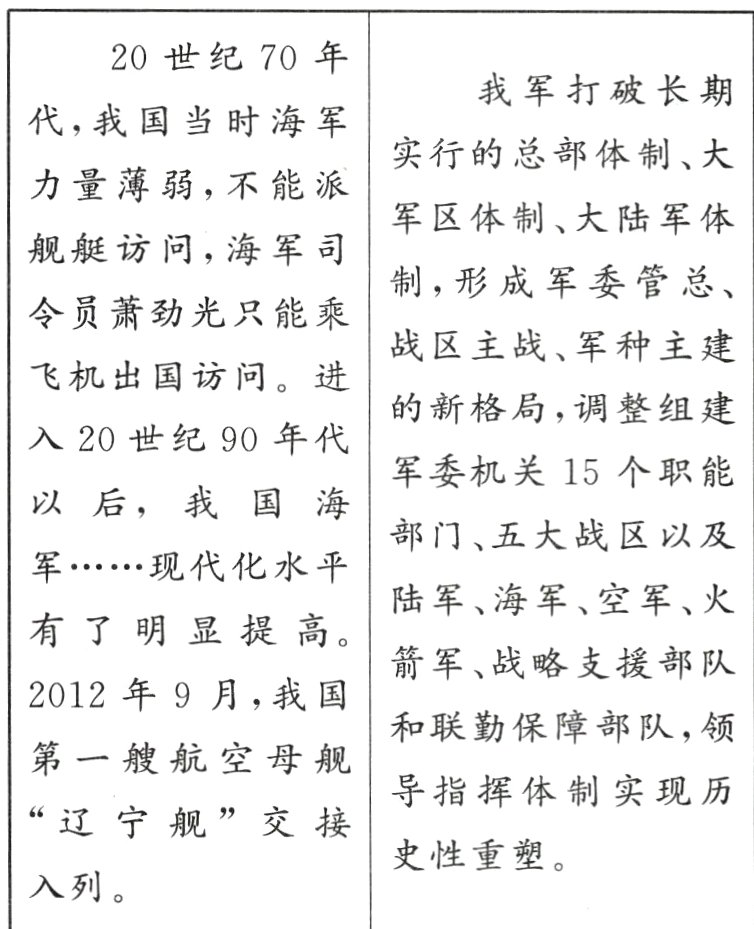 20 世纪 70 年
代,我国当时海军
力量薄弱,不能派
舰艇访问,海军司
令员萧劲光只能乘
飞机出国访问。进
入 20 世纪 90 年代
以后,我国海
军……现代化水平
有了明显提高。
2012 年 9 月,我国
第一艘航空母舰
“辽宁舰”交接
入列。
我军打破长期
实行的总部体制、大
军区体制、大陆军体
制,形成军委管总、
战区主战、军种主建
的新格局,调整组建
军委机关 15 个职能
部门、五大战区以及
陆军、海军、空军、火
箭军、战略支援部队
和联勤保障部队,领
导指挥体制实现历
史性重塑。